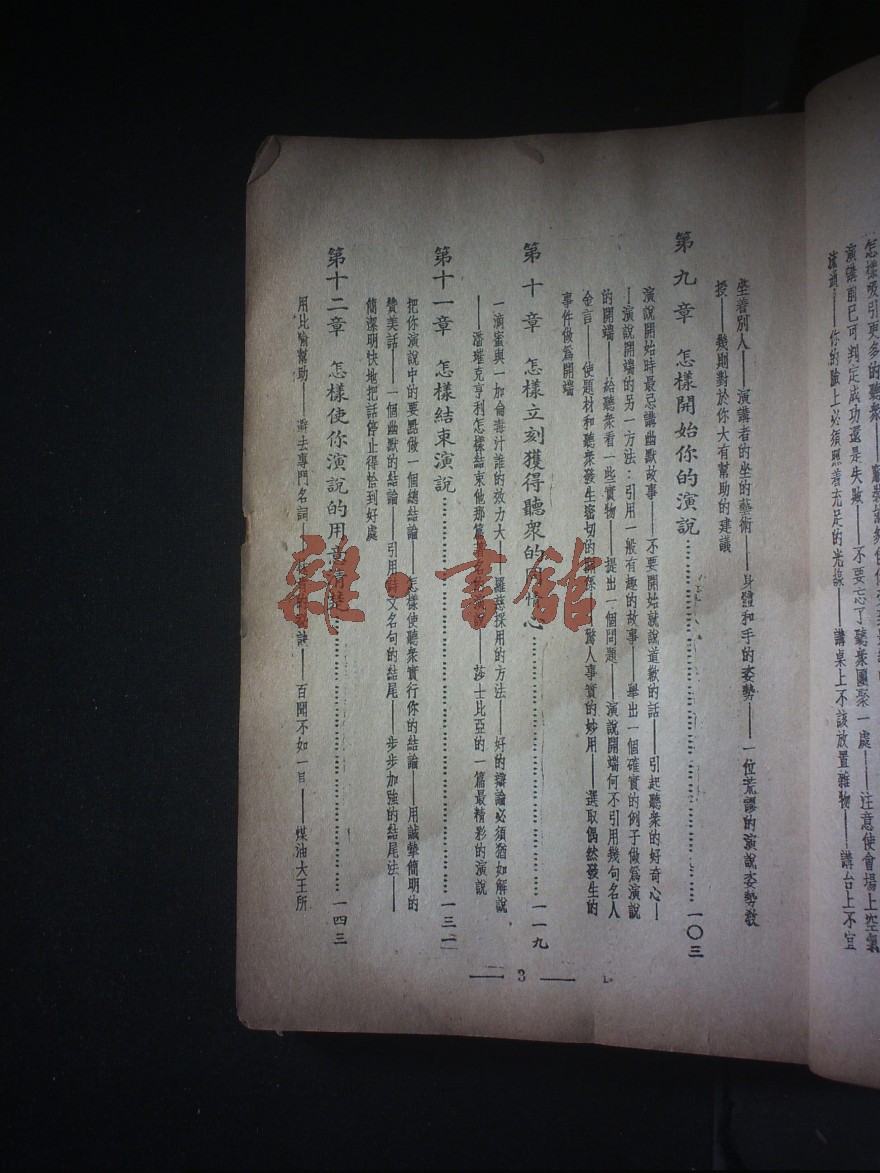 怎樣吸引更多的聽衆
演講前已可判定成功還是失敗——不要忘了聽衆團聚一處——注意使會場上空氣
流通——你的臉上必須照着充足的光線——講桌上不該放置雜物——講台上不宜
坐着別人——演講者的坐的藝術——身體和手的姿勢——一位荒謬的演說姿勢教
授——幾則對於你大有幫助的建議
第九章 怎樣開始你的演說……………一〇三
演說開始時最忌講幽默故事——不要開始就說道歉的話——引起聽衆的好奇心—
—演說開端的另一方法：引用一般有趣的故事——舉出一個確實的例子做爲演說
的開端——給聽衆看一些實物——提出一個問題——演說開端何不引用幾句名人
金言——使題材和聽衆發生密切的關係——驚人事實的妙用——選取偶然發生的
事件做爲開端
第十章 怎樣立刻獲得聽衆的同情心……………一一九
一滴蜜與一加侖毒汁誰的效力大——羅慈採用的方法——好的辯論必須猶如解說
——潘璀克亨利怎樣結束他那篇著名的演說——莎士比亞的一篇最精彩的演說
第十一章 怎樣結束演說……………一三一
把你演說中的要點做一個總結論——怎樣使聽衆實行你的結論——用誠摯簡明的
贊美話——一個幽默的結論——引用詩文名句的結尾——步步加強的結尾法——
簡潔明快地把話停止得恰到好處
第十二章 怎樣使你演說的用意清楚……………一四三
用比喻幫助——避去專門名詞——訣——百聞不如一目——煤油大王所
— 3 —
雜·書館